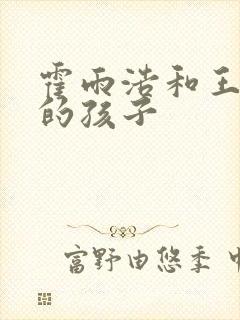 霍雨浩和王
的孩子
富野由悠季